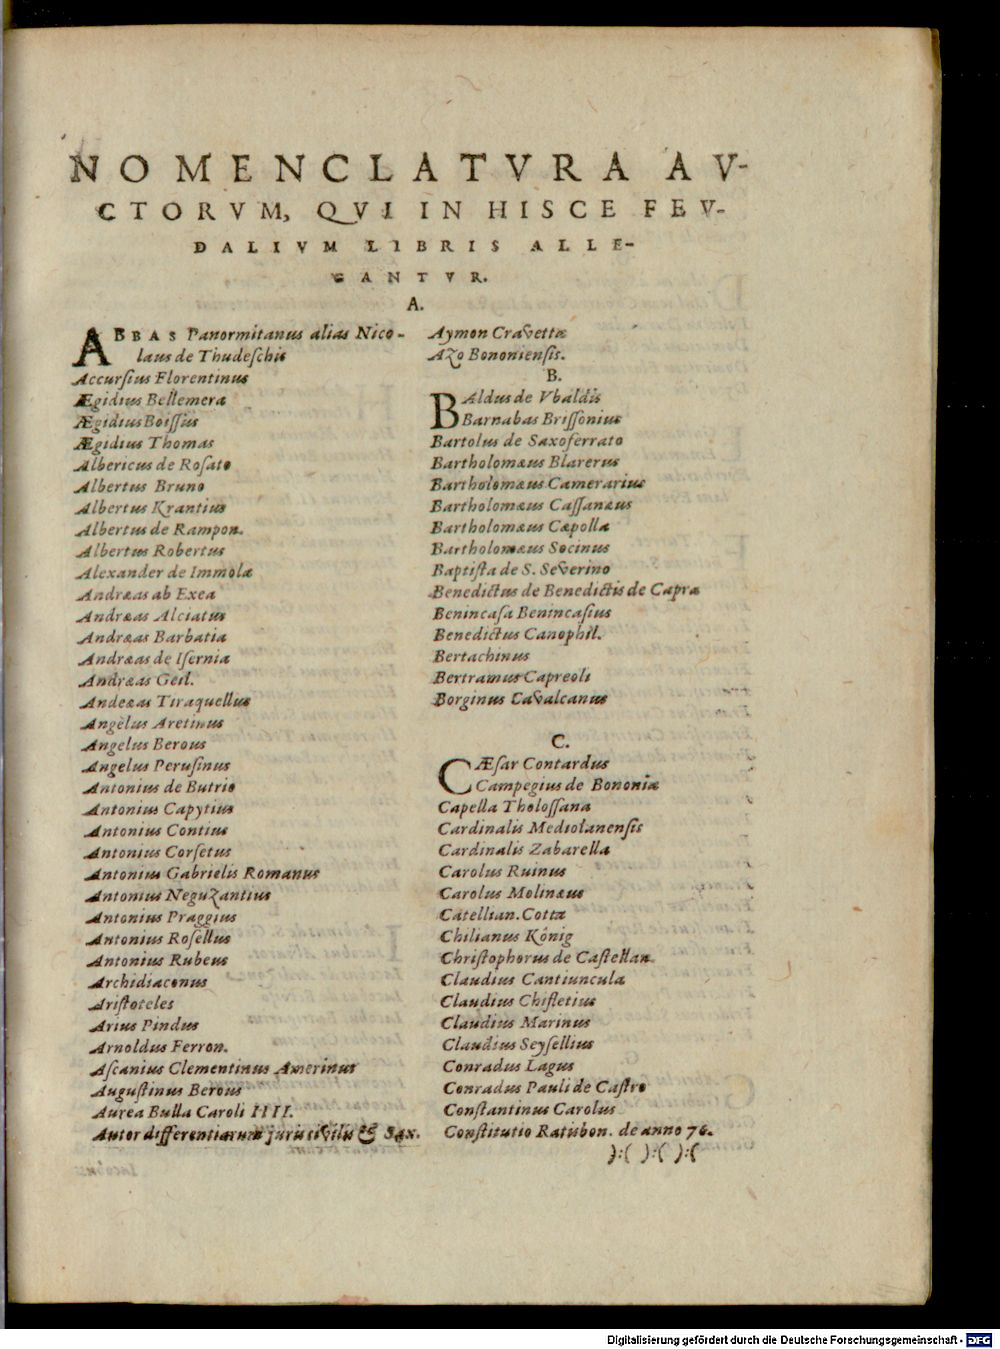 NOMENCLATVRA AV-
CTORVM, QVI IN HISCE FEV-
DALIVM LIBRIS ALLE-
GANTVR.
A.
ABBAS Panormitanus alias Nico-
laus de Thudeſchis
Accurſius Florentinus
Ægidius Bellemera
Ægidius Boiſſius
Ægidius Thomas
Albericus de Roſate
Albertus Bruno
Albertus Krantius
Albertus de Rampon.
Albertus Robertus
Alexander de Immola
Andræas ab Exea
Andræas Alciatus
Andræas Barbatia
Andræas de Iſernia
Andræas Geil.
Andeæas Tiraquellus
Angelus Aretinus
Angelus Berous
Angelus Peruſinus
Antonius de Butrio
Antonius Capytius
Antonius Contius
Antonius Corſetus
Antonius Gabrielis Romanus
Antonius Neguzantius
Antonius Praggius
Antonius Roſellus
Antonius Rubeus
Archidiaconus
Ariſtoteles
Arius Pindus
Arnoldus Ferron.
Aſcanius Clementinus Amerinus
Auguſtinus Berous
Aurea Bulla Caroli IIII.
Autor differentiarum juris civilis & Sax.
Aymon Cravetta
Azo Bononienſis.
B.
BAldus de Vbaldis
Barnabas Briſſonius
Bartolus de Saxoferrato
Bartholomæus Blarerus
Bartholomæus Camerarius
Bartholomæus Caſſanæus
Bartholomæus Cæpolla
Bartholomæus Socinus
Baptiſta de S. Severino
Benedictus de Benedictis de Capra
Benincaſa Benincaſius
Benedictus Canophil.
Bertachinus
Bertramus Capreoli
Borginus Cavalcanus
C.
CÆſar Contardus
Campegius de Bononia
Capella Tholoſſana
Cardinalis Mediolanenſis
Cardinalis Zabarella
Carolus Ruinus
Carolus Molinæus
Catellian. Cotta
Chilianus König
Chriſtophorus de Caſtellan.
Claudius Cantiuncula
Claudius Chifletius
Claudius Marinus
Claudius Seyſellius
Conradus Lagus
Conradus Pauli de Caſtro
Conſtantinus Carolus
Conſtitutio Ratisbon. de anno 76.
):( ):( ):(
Digitalisierung gefördert durch die Deutsche Forschungsgemeinschaft - DFG